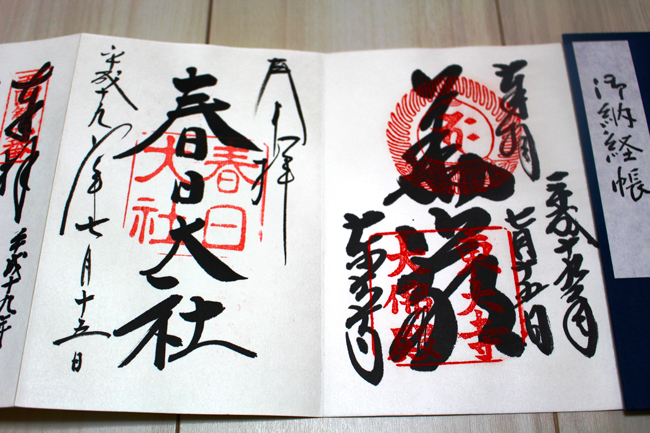 御納経帳
奉拝
平成十九年
七月十五日
華嚴
東大寺
東大寺
大佛殿
奉拝
春日大社
春日
大社
平成十九年七月十五日
奉拝
平成十九年